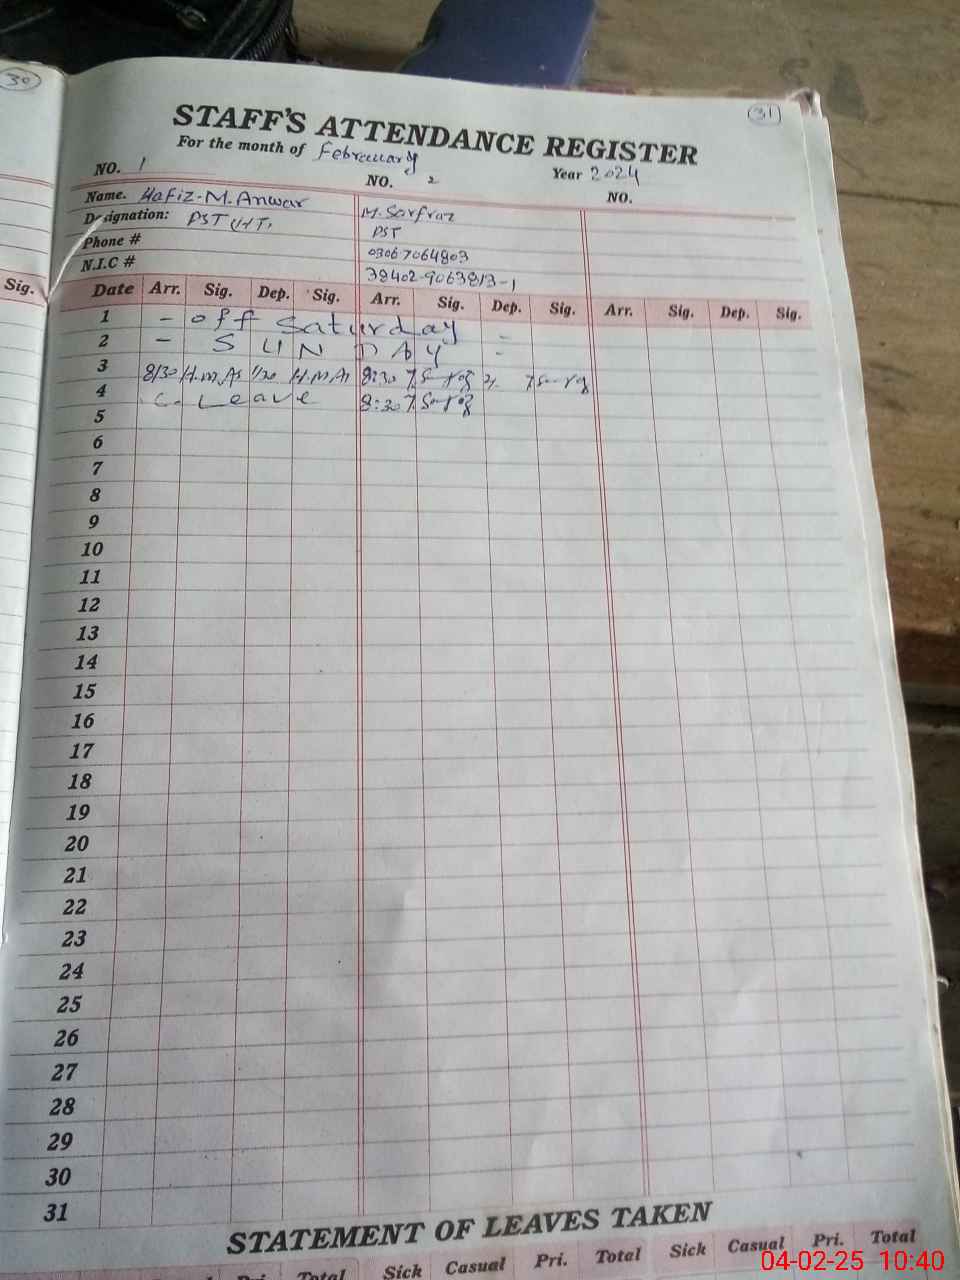 30
31
STAFF'S ATTENDANCE REGISTER
For the month of Februuary Year 2024
NO. 1 NO. 2 NO.
Name. Hafiz-M. Anwar M. Sarfraz
Designation: PST (HT) PST
Phone # 03067064803
N.I.C # 38402-9063813-1
Sig.
Date Arr. Sig. Dep. Sig. Arr. Sig. Dep. Sig. Arr. Sig. Dep. Sig.
1 - off Saturday -
2 - SUNDAY -
3 8/30 1/30 8:30
4 C. Leave 8:30
5
6
7
8
9
10
11
12
13
14
15
16
17
18
19
20
21
22
23
24
25
26
27
28
29
30
31
STATEMENT OF LEAVES TAKEN
Pri. Total Sick Casual Pri. Total Sick Casual Pri. Total
04-02-25 10:40